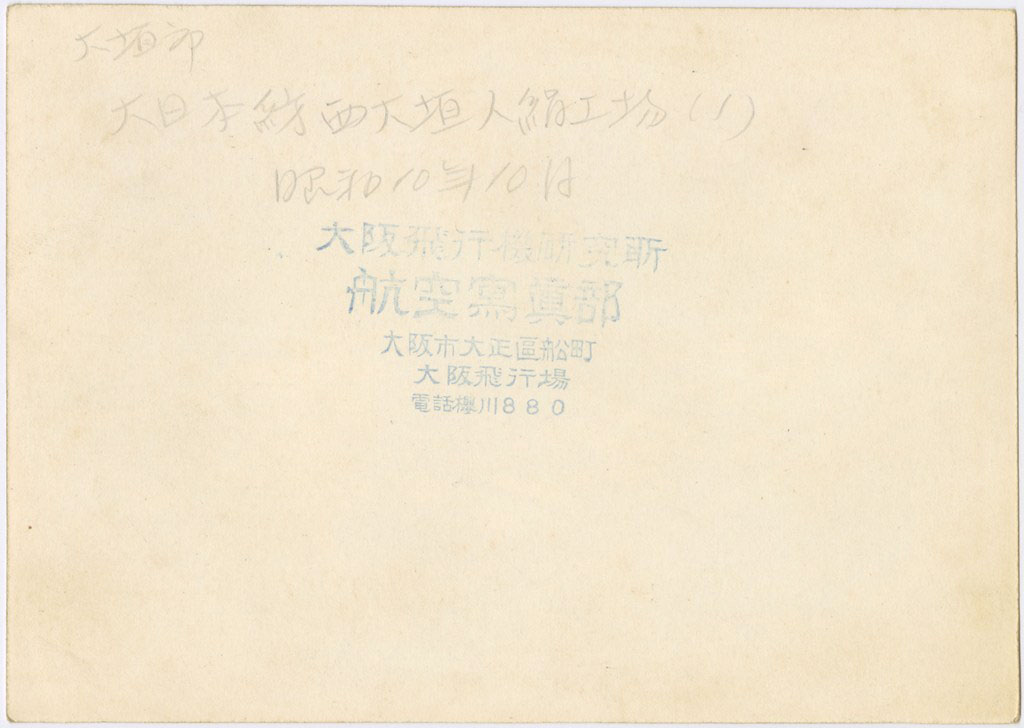 大垣市
大日本紡西大垣人絹工場(1)
昭和10年10月
大阪飛行機研究所
航空寫眞部
大阪市大正區船町
大阪飛行場
電話櫻川880